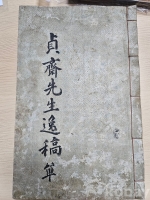 貞齋先生逸稿單